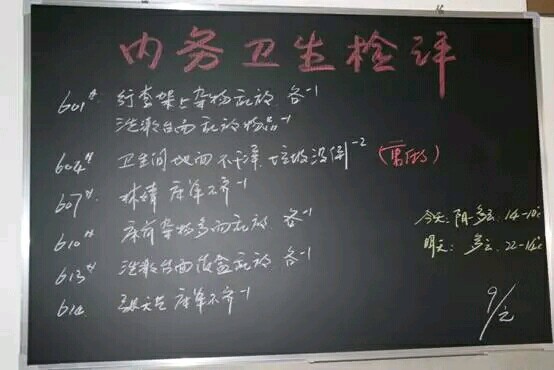 内务卫生检评
601# 行李架上杂物乱放 各-1
洗漱台面乱放物品-1
604# 卫生间地面不干净,垃圾没倒-2
607# 林婧 床单不齐-1
610# 床前杂物多而乱放 各-1
今天:阴-多云 14-10℃
613# 洗漱台面饭盒乱放 各-1
明天: 多云 22-14℃
614 床单不齐-1
9/